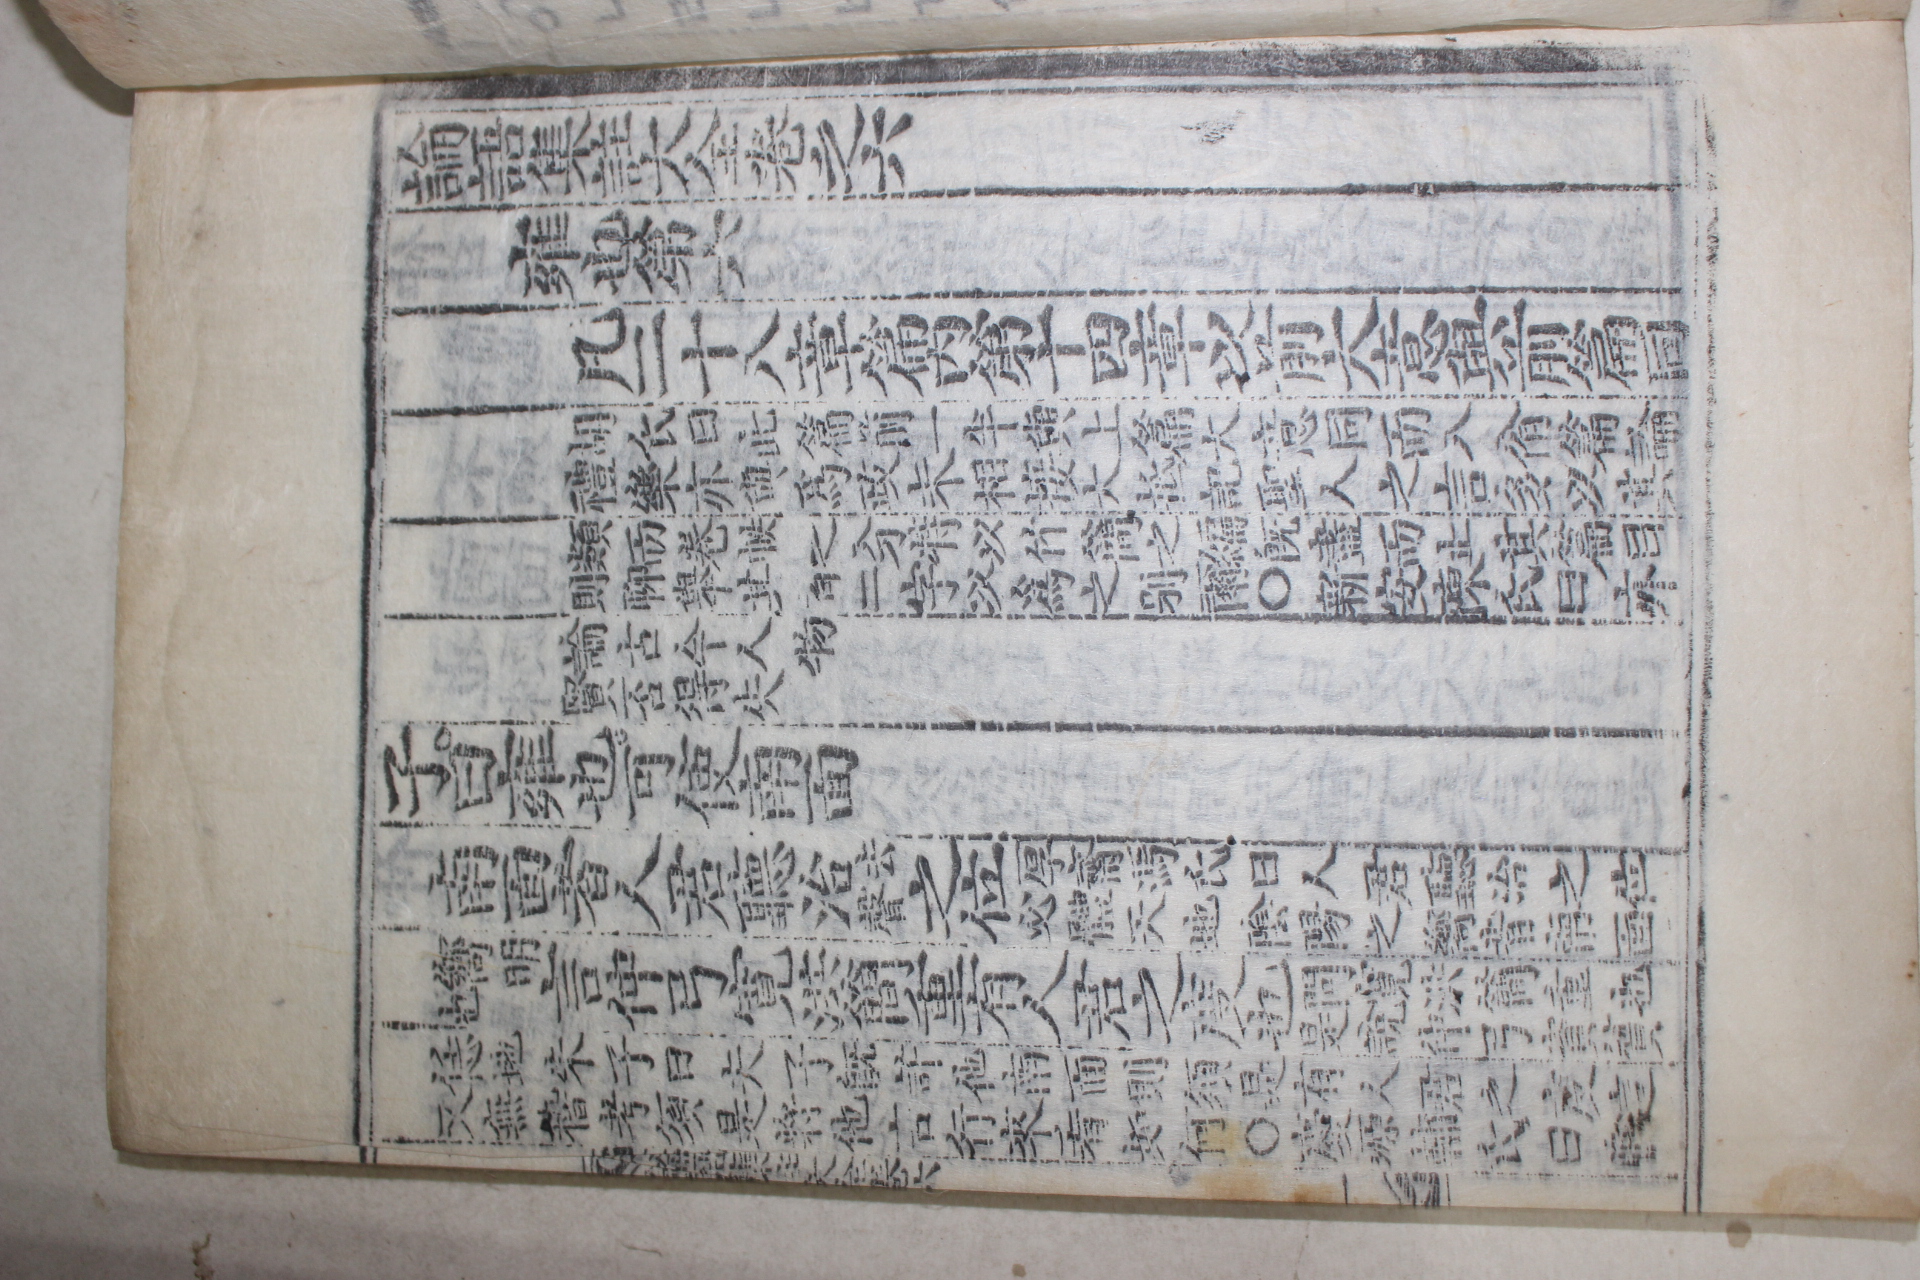 論語集註大全卷之六
雍也第六
凡二十八章篇內第十四章以前大意與前篇同
胡氏曰此篇前一半與上篇大意同而八佾篇論
禮樂亦與爲政末相接大抵記聖人之言多以其
類而卷帙之分特以竹簡之編旣盡而止其篇目
則聊舉其首二字以爲之別爾○新安陳氏曰亦
論古今人物
賢否得失
子曰雍也可使南面
南面者人君聽治去聲之位厚齋馮氏曰人君聽治之位
必體天地陰陽之嚮背南面
嚮明也言仲弓寬洪簡重有人君之度也問寬洪簡重也
是說仲弓資質
恁地朱子曰夫子旣許他南面則須是有人君之度這
又無稽考須是將他言行來看如何○慶源輔氏曰寬